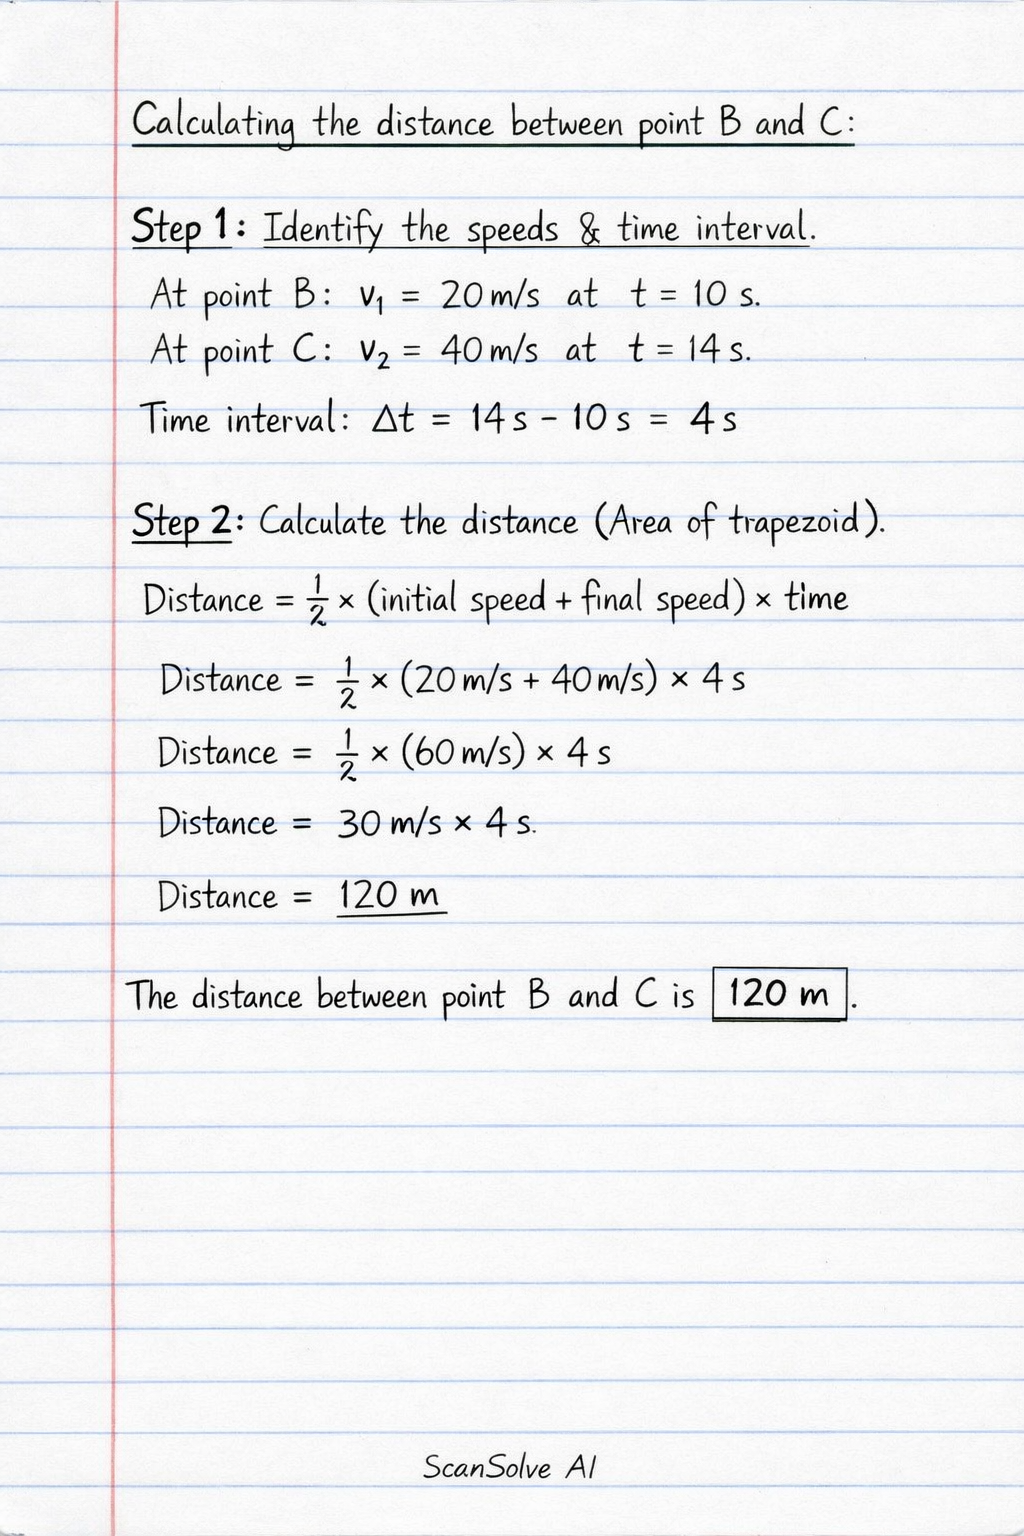 Calculating the distance between point B and C:
Step 1: Identify the speeds & time interval.
At point B: v₁ = 20 m/s at t = 10 s.
At point C: v₂ = 40 m/s at t = 14 s.
Time interval: Δt = 14 s − 10 s = 4 s
Step 2: Calculate the distance (Area of trapezoid).
Distance = 1/2 × (initial speed + final speed) × time
Distance = 1/2 × (20 m/s + 40 m/s) × 4 s
Distance = 1/2 × (60 m/s) × 4 s
Distance = 30 m/s × 4 s.
Distance = 120 m
The distance between point B and C is 120 m.
ScanSolve AI